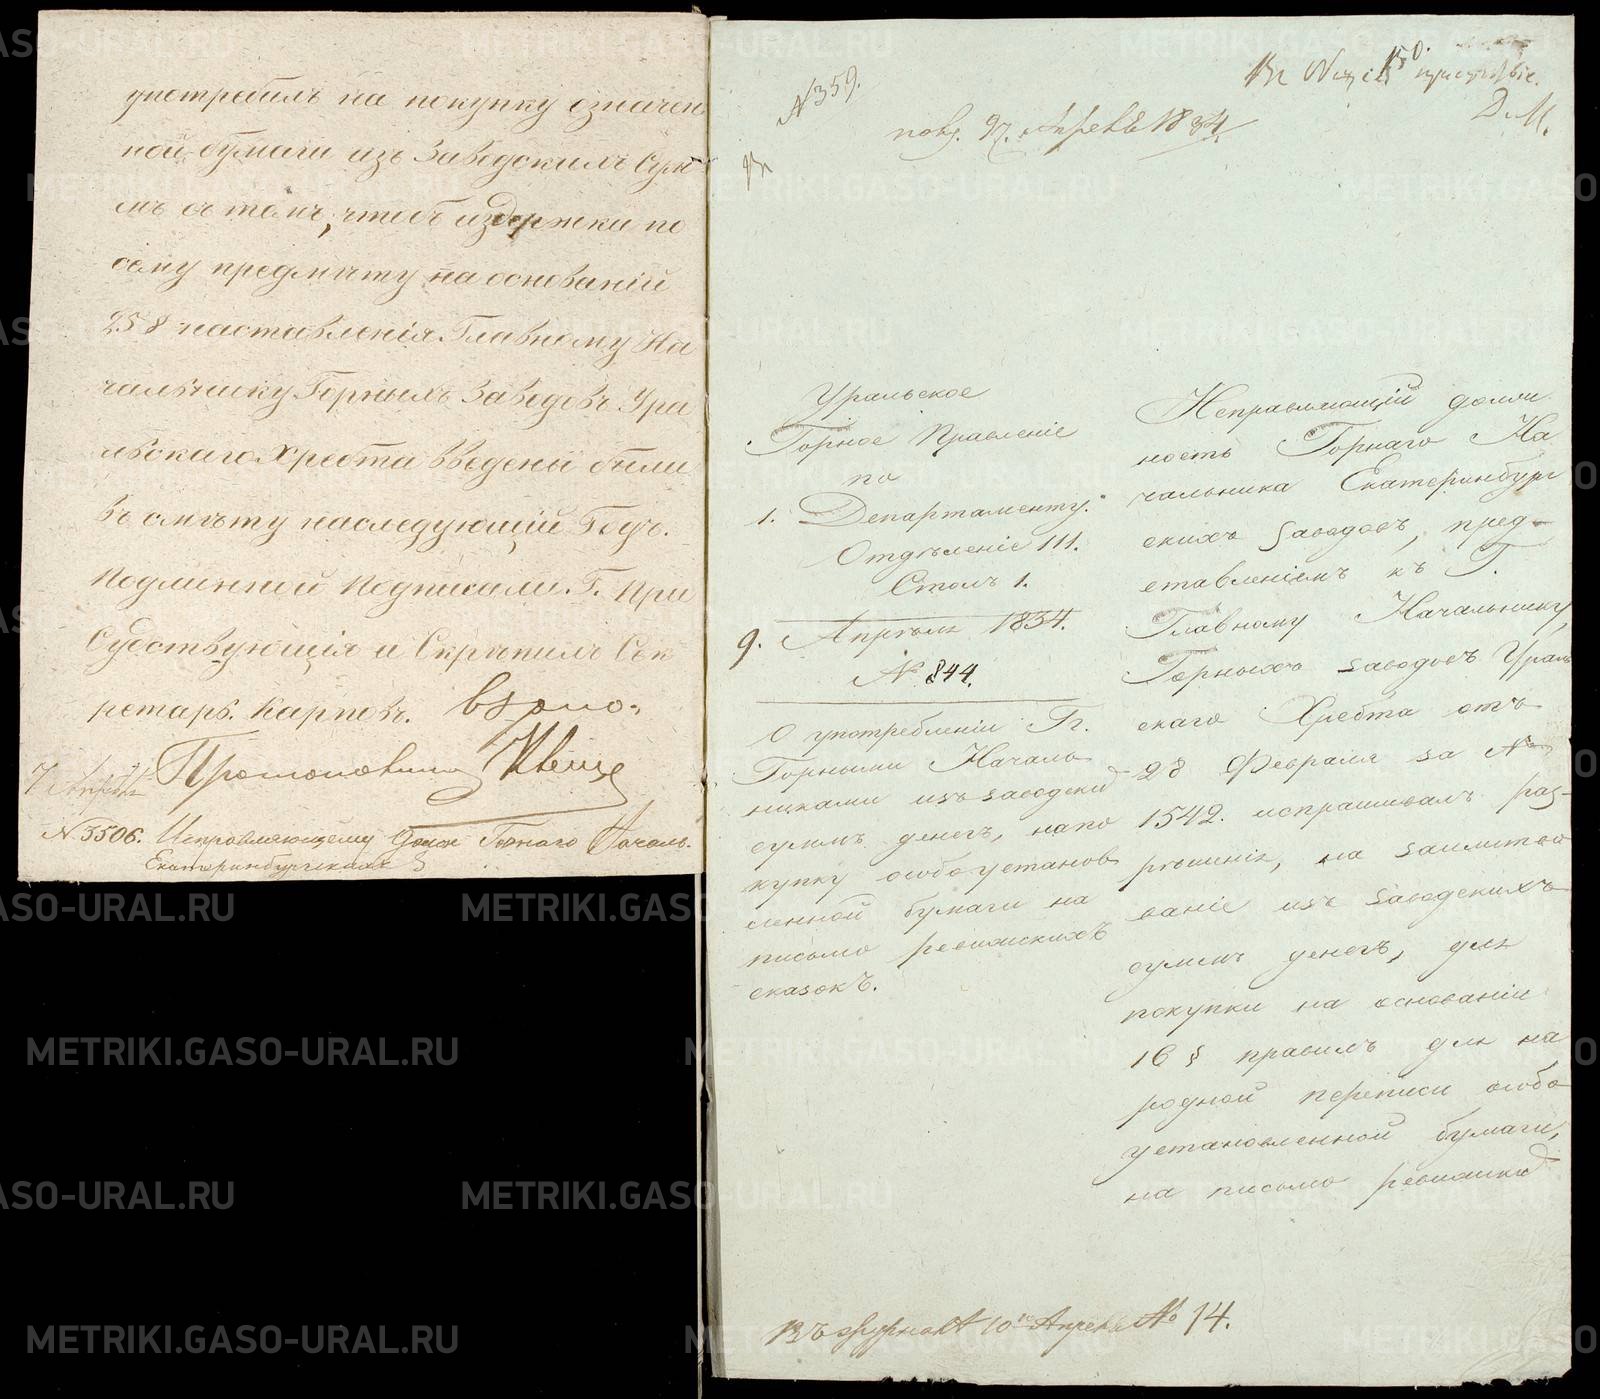 употребилъ на покупку означен
ной бумаги изъ Заводскихъ Сум
мъ съ темъ, чтобъ издержки по
сему предмѣту на основаній
25 § наставленія Главному На
чальнику Горныхъ Заводовъ Ура
льскаго Хребта введены были
въ смѣту наследующій Годъ.
Подлинной Подписали. Г. При
Судствующія и Скрѣпилъ Сек
ретарь. Карповъ.
7 Апрѣля
N. 3506. Исправляющему Должн Горнаго Началь.
Екатеринбургскихъ З
N 359.
пол. 97. Апреля 1834
Д. М.
Уральское
Горное Правленіе
по
1. Департаменту.
Отдѣленіе III.
Столъ 1.
9. Апрѣля 1834.
№ 844.
О употребленіи Гг.
Горными Началь
никами изъ заводских
суммъ денегъ, на по
купку особо установ
ленной бумаги на
письмо ревижскихъ
сказокъ.
Исправляющій долж
ность Горнаго На
чальника Екатеринбург
скихъ заводовъ, пред-
ставленіемъ къ Г.
Главному Начальнику
Горныхъ заводовъ Ураль
скаго Хребта отъ
28 Февраля за №
1542. испрашивалъ раз-
рѣшенія, на заимство
ваніе изъ заводскихъ
суммъ денегъ, для
покупки на основаніи
16 § правилъ для на
родной переписи особо
установленной бумаги,
на письмо ревижских
Въ журналѣ 10го Апреля № 14.
METRIKI.GASO-URAL.RU